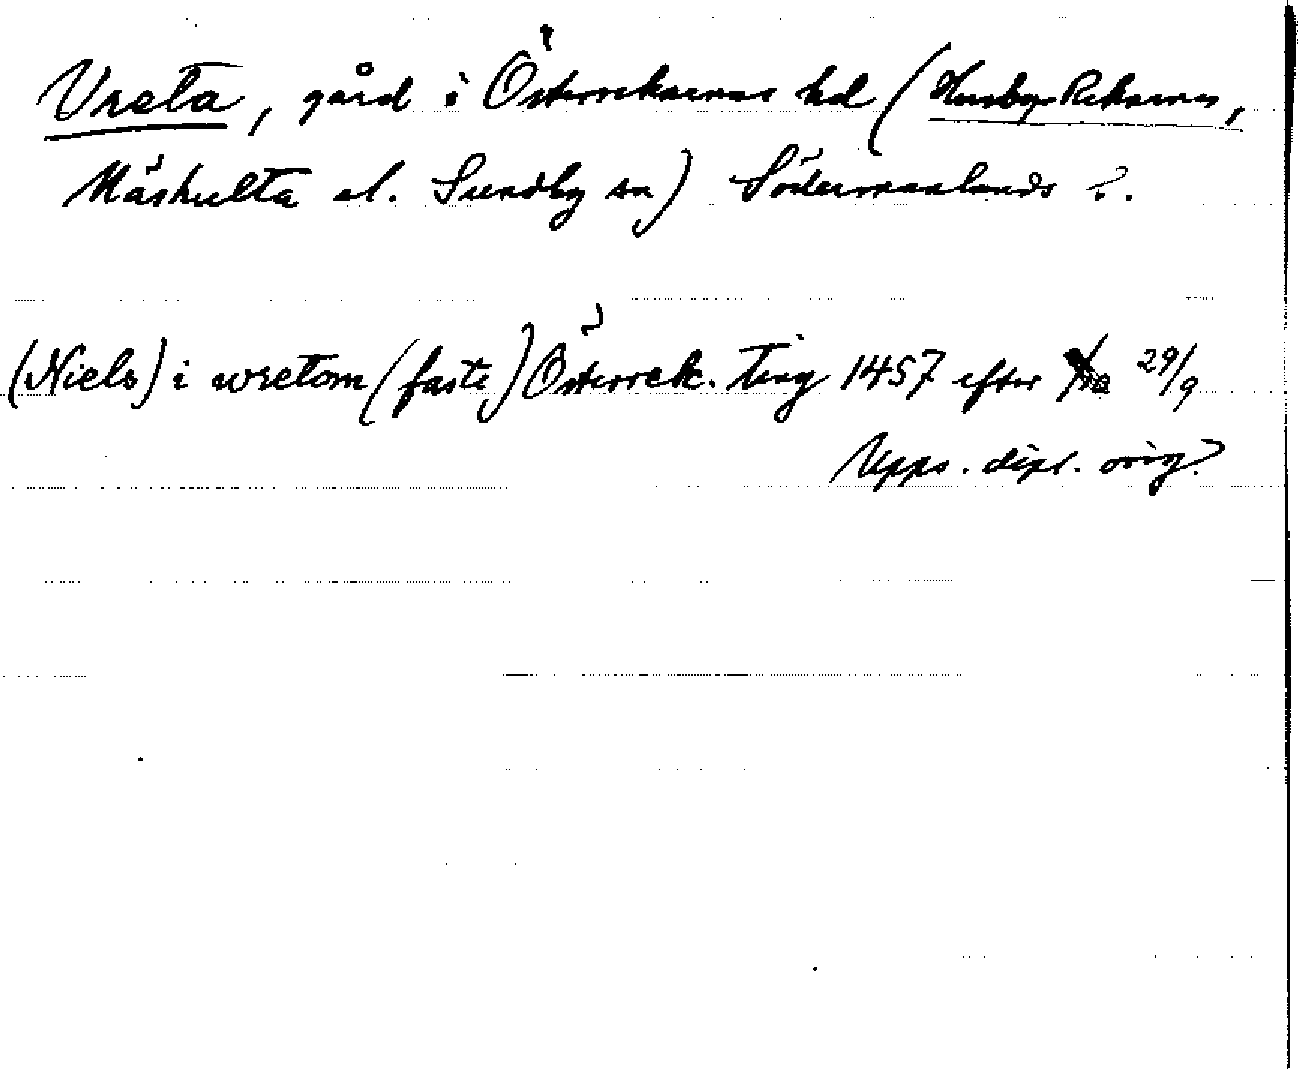 Vreta, gård i Österrekarnes hd (Husby-Rekarnes,
Näshulta el. Sundby sn) Södermanlands ?.
(Niels) i wretom (faste) Österrek. Ting 1457 efter 29/9
Upps. dipl. orig?